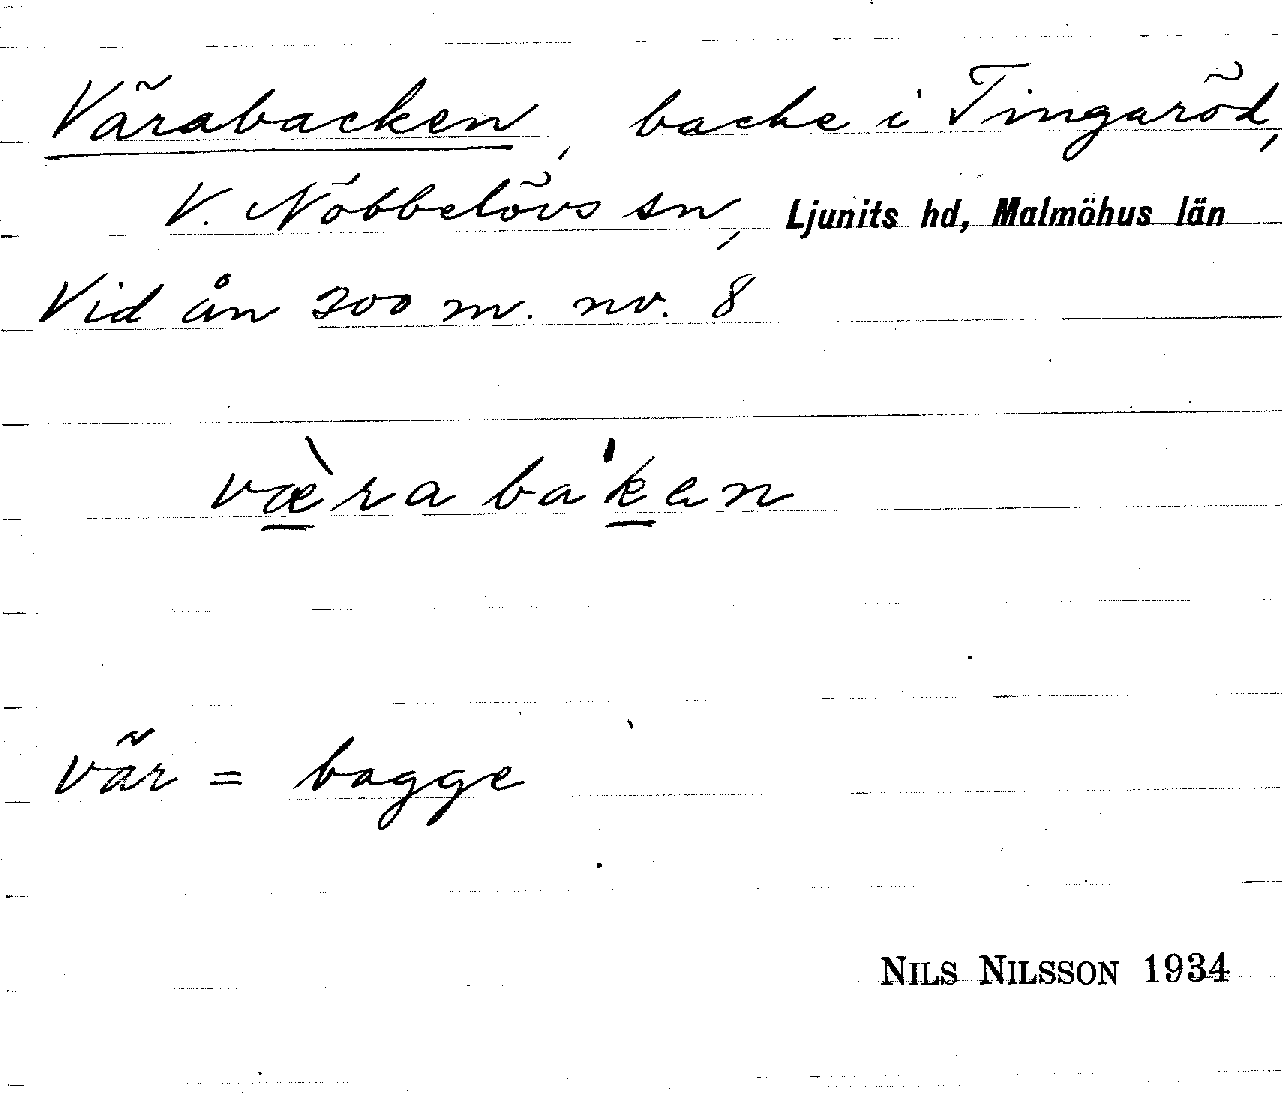 Värabacken, backe i Tingaröd,
V. Nöbbelövs sn, Ljunits hd, Malmöhus län
Vid ån 200 m. nv. 8
væ̀ra ba'ken
vär = bagge
NILS NILSSON 1934